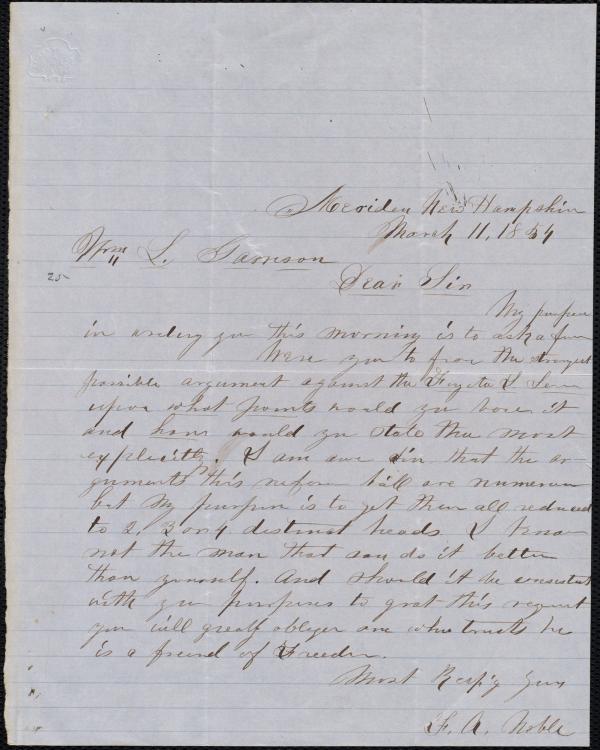 Meriden New Hampshire
March 11, 1854
Wm L. Garrison
25
Dear Sir
My purpose
in writing you this morning is to ask a few
Were you to frame the strongest
possible argument against the Fugitive S. Law
upon what points would you base it
and how would you state them most
explicitly? I am aware Sir that the ar-
guments this nefarious bill are numerous
but my purpose is to get them all reduced
to 2, 3 or 4 distinct heads. I know
not the man that can do it better
than yourself. And should it be consistent
with your purposes to grant this request
you will greatly oblige one who trusts he
is a friend of Freedom.
Most Resp'y Yours
F. A. Noble